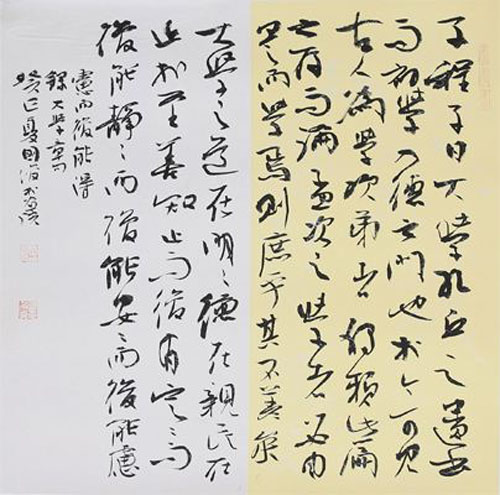 子程子曰大學孔氏之遺書
而初學入德之門也於今可見
古人為學次第者獨賴此篇
之存而論孟次之學者必由
是而學焉則庶乎其不差矣
大學之道在明〻德在親民在
止於至善知止而後有定〻而
後能靜〻而後能安〻而後能慮
慮而後能得
錄大學章句
癸巳夏國